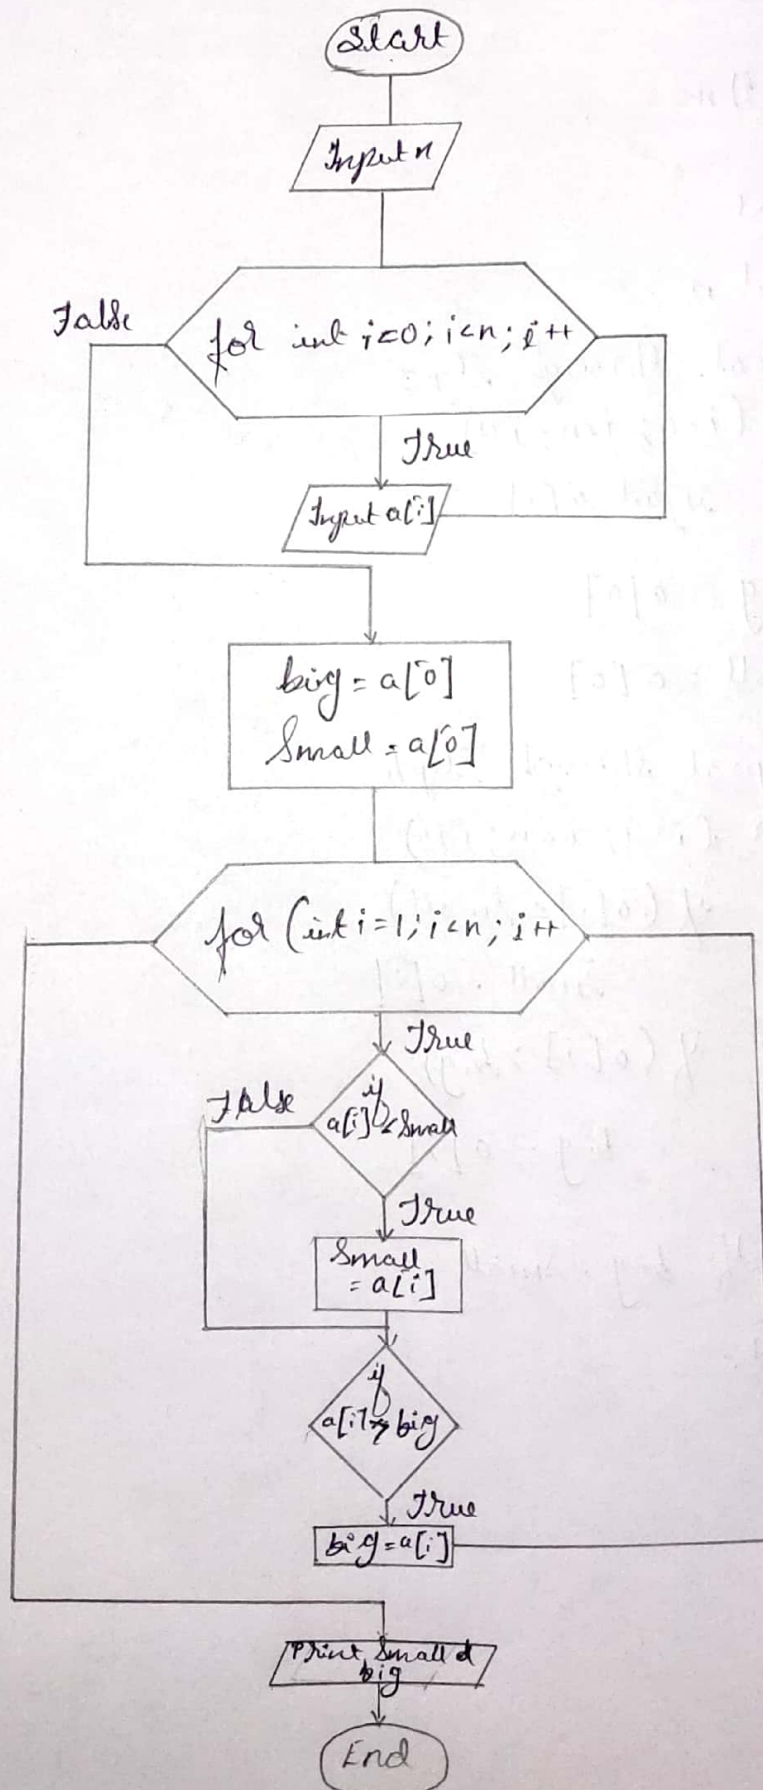 Start
Input n
False
for int i=0; i<n; i++
True
Input a[i]
big = a[0]
Small = a[0]
for (int i=1; i<n; i++
True
if
False
a[i] < Small
True
Small
= a[i]
if
a[i] > big
True
big = a[i]
Print Small &
big
End